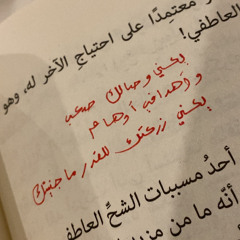 معتمِدًا على احتياجِ الآخر له، وهو
العاطفي!
يعني وصالك صعب
و أهدافي أوهام
يعني زرعتك للقدر ما جنيتك
أحدُ مسببات الشحِّ العاطف
أنّه ما من